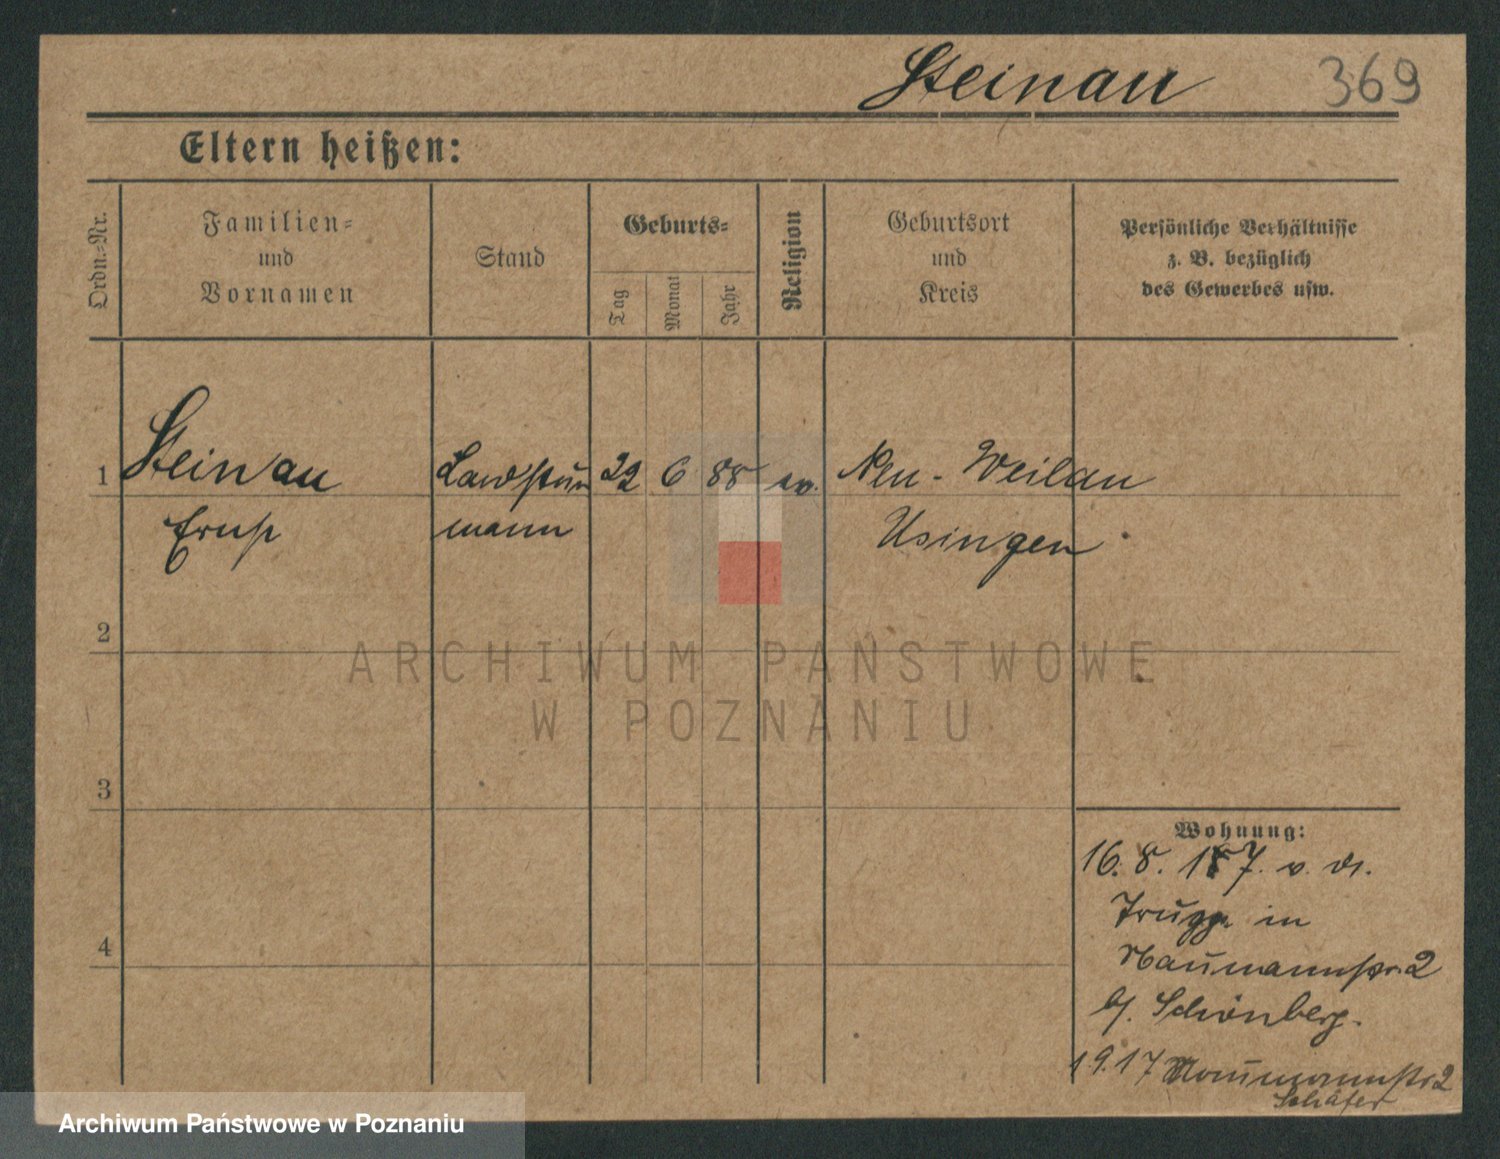 Steinau 369
Eltern heißen:
Ordn.-Nr.
Familien-
und
Vornamen
Stand
Geburts-
Tag
Monat
Jahr
Religion
Geburtsort
und
Kreis
Persönliche Verhältnisse
z. B. bezüglich
des Gewerbes usw.
1 Steinau Landstur 22 6 88 ev. Neu-Weilau
Ernst mann Usingen
2
3
4
Wohnung:
16. 8. 17. v. d.
Truppe in
Naumannstr. 2
b/. Schönberg.
1 9. 17 Naumannstr 2
Schäfer
ARCHIWUM PAŃSTWOWE
W POZNANIU
Archiwum Państwowe w Poznaniu